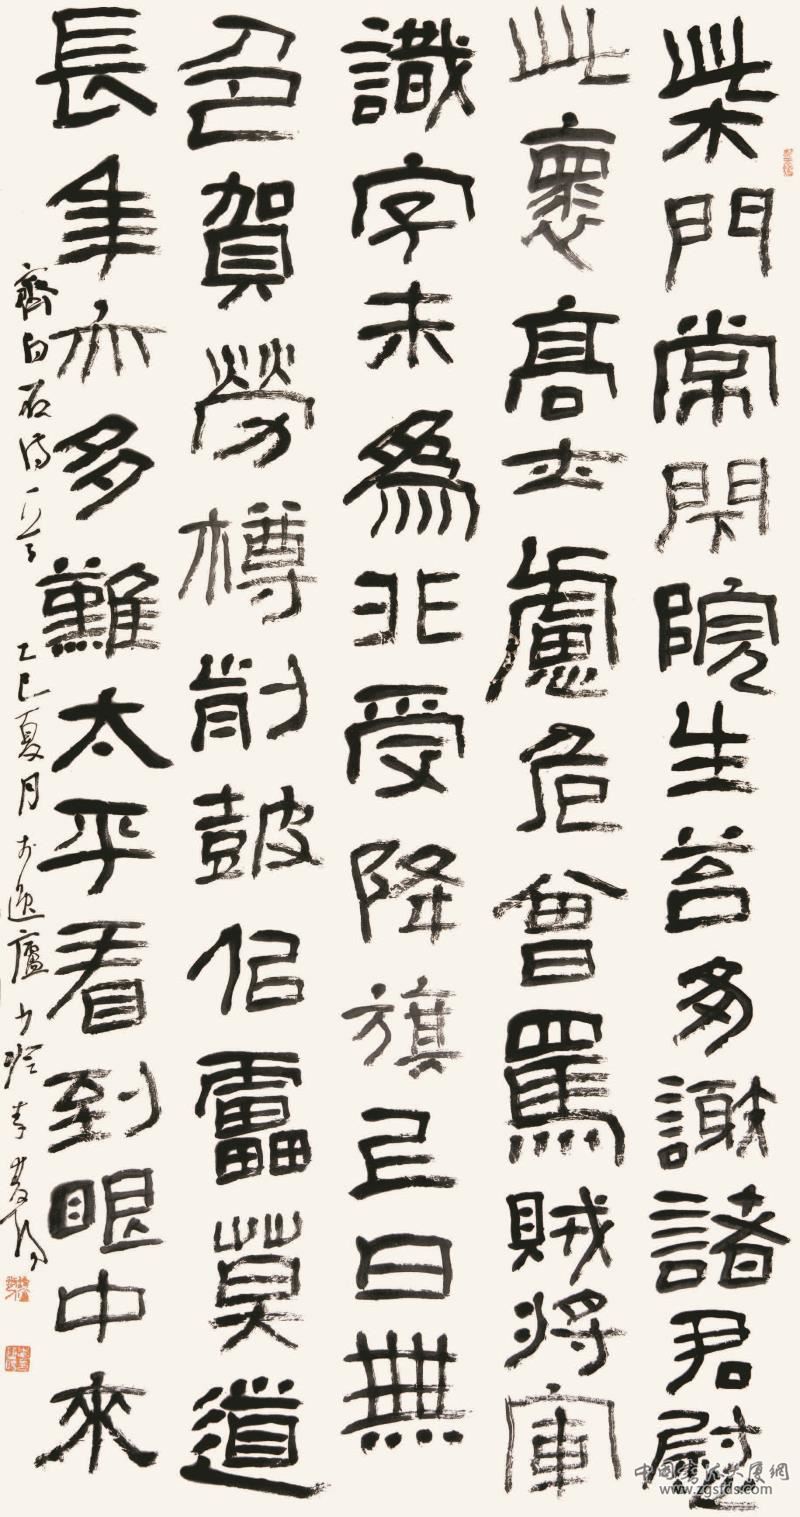 柴門常閉院生苔多謝諸君慰
此褱高士慮危曾罵賊將軍
識字未為非受降旗上日無
色賀勞樽前鼓佀雷莫道
長年亦多難太平看到眼中來
齊白石詩一首 乙巳夏月於逸廬
中國書法大厦網
www.zgsfds.com